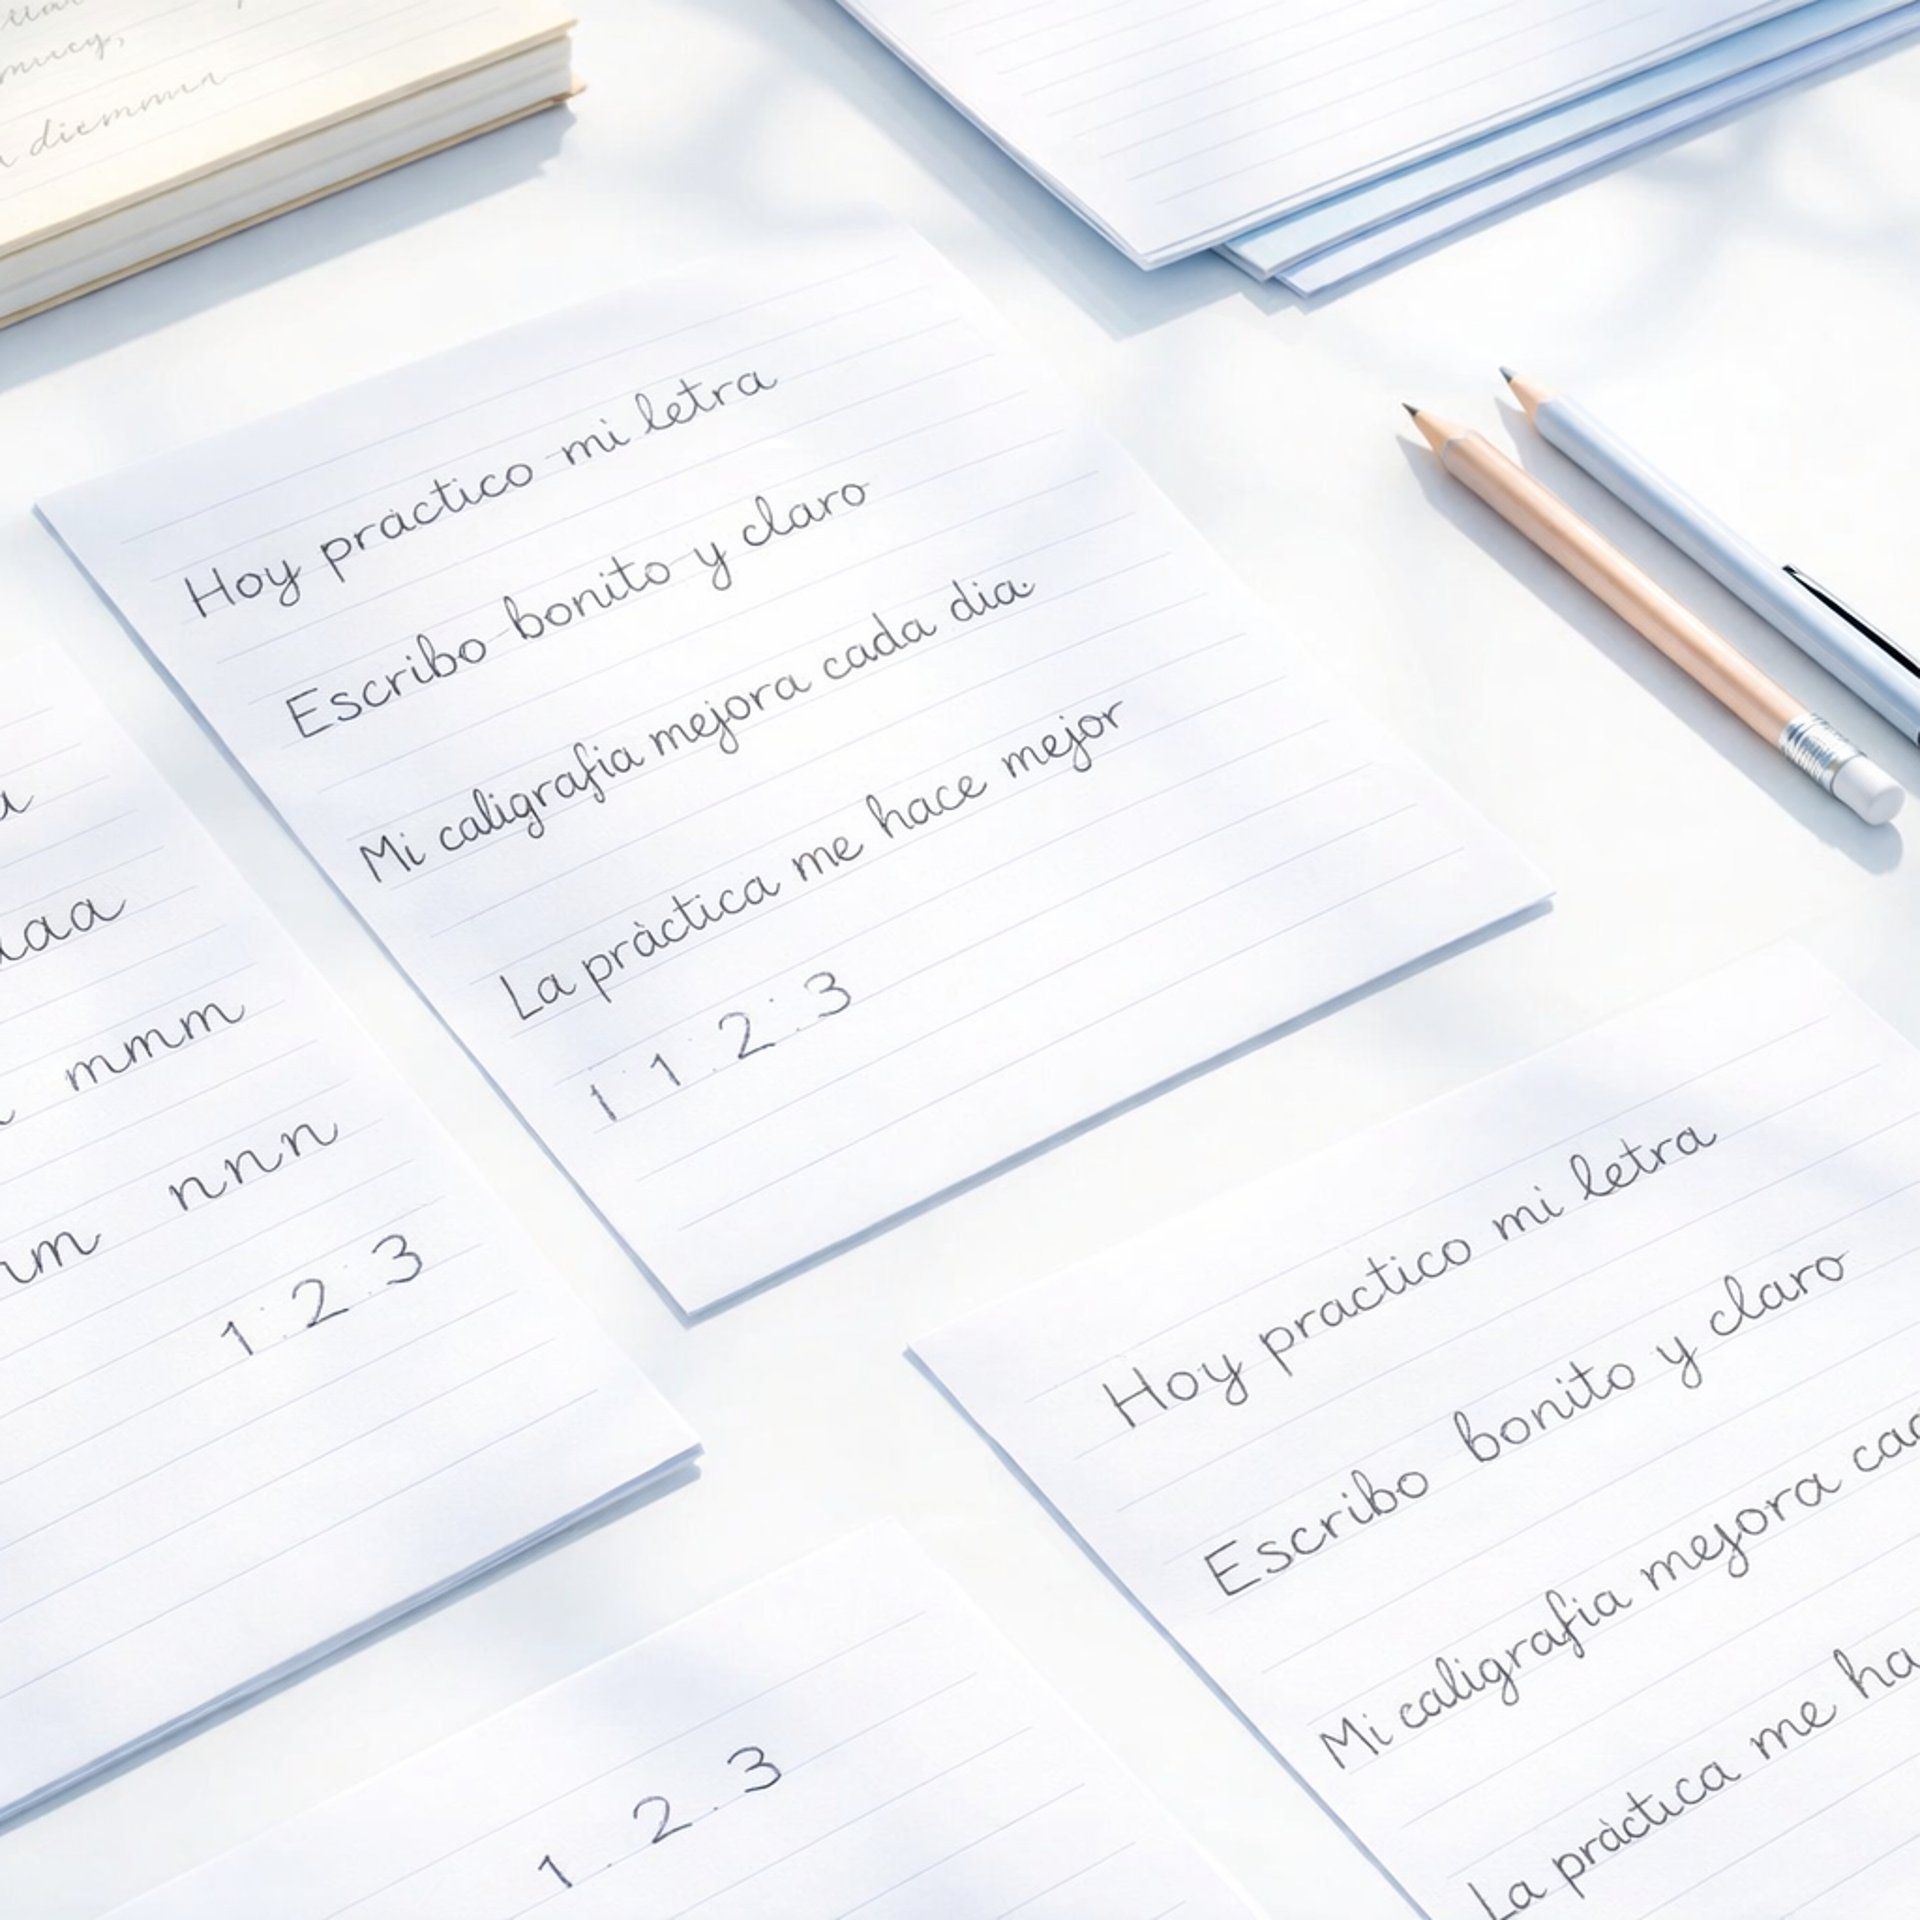 diemma
Hoy pràctico mi letra
Escribo bonito y claro
Mi caligrafia mejora cada dia.
La pràctica me hace mejor
1 1 . 2 . 3
mmm
nnn
1 . 2 . 3
Hoy practico mi letra
Escribo bonito y claro
Mi caligrafia mejora
La pràctica me
1 . 2 . 3